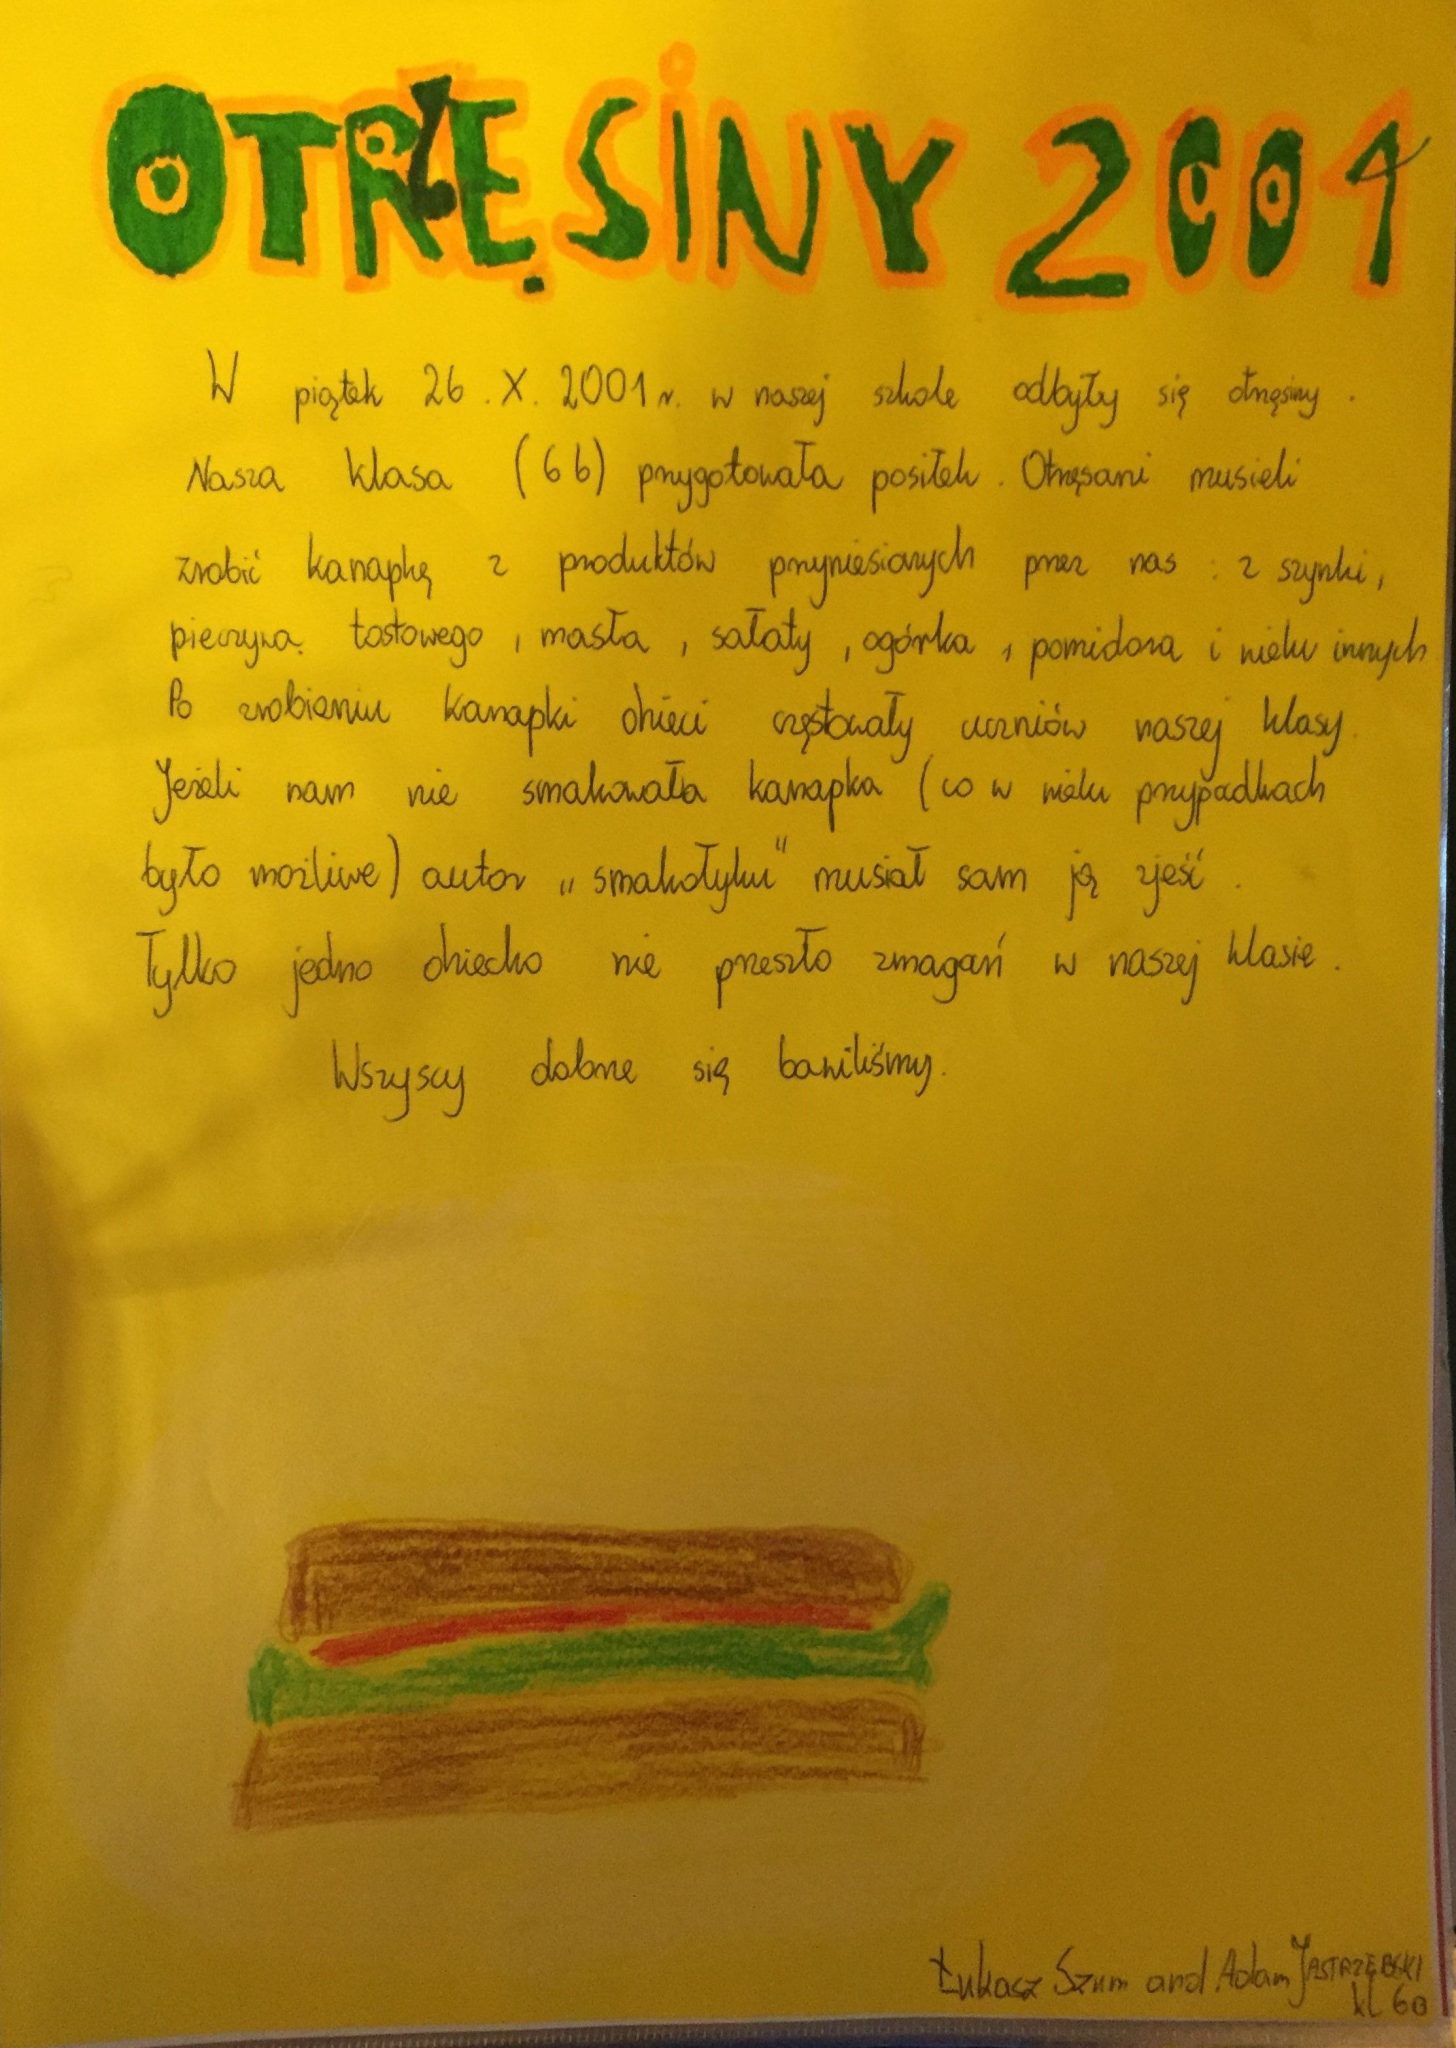 OTRZĘSINY 2001
W piątek 26.X.2001r. w naszej szkole odbyły się otrzęsiny.
Nasza klasa (6b) przygotowała posiłek. Otrzęsani musieli
zrobić kanapkę z produktów przyniesionych przez nas : z szynki,
pieczywa tostowego, masła, sałaty, ogórka, pomidora i wielu innych
Po zrobieniu kanapki dzieci częstowały uczniów naszej klasy.
Jeżeli nam nie smakowała kanapka (co w wielu przypadkach
było możliwe) autor „smakołyku" musiał sam ją zjeść.
Tylko jedno dziecko nie przeszło zmagań w naszej klasie.
Wszyscy dobrze się bawiliśmy.
Łukasz Szum and Adam JASTRZĘBSKI
kl 6B